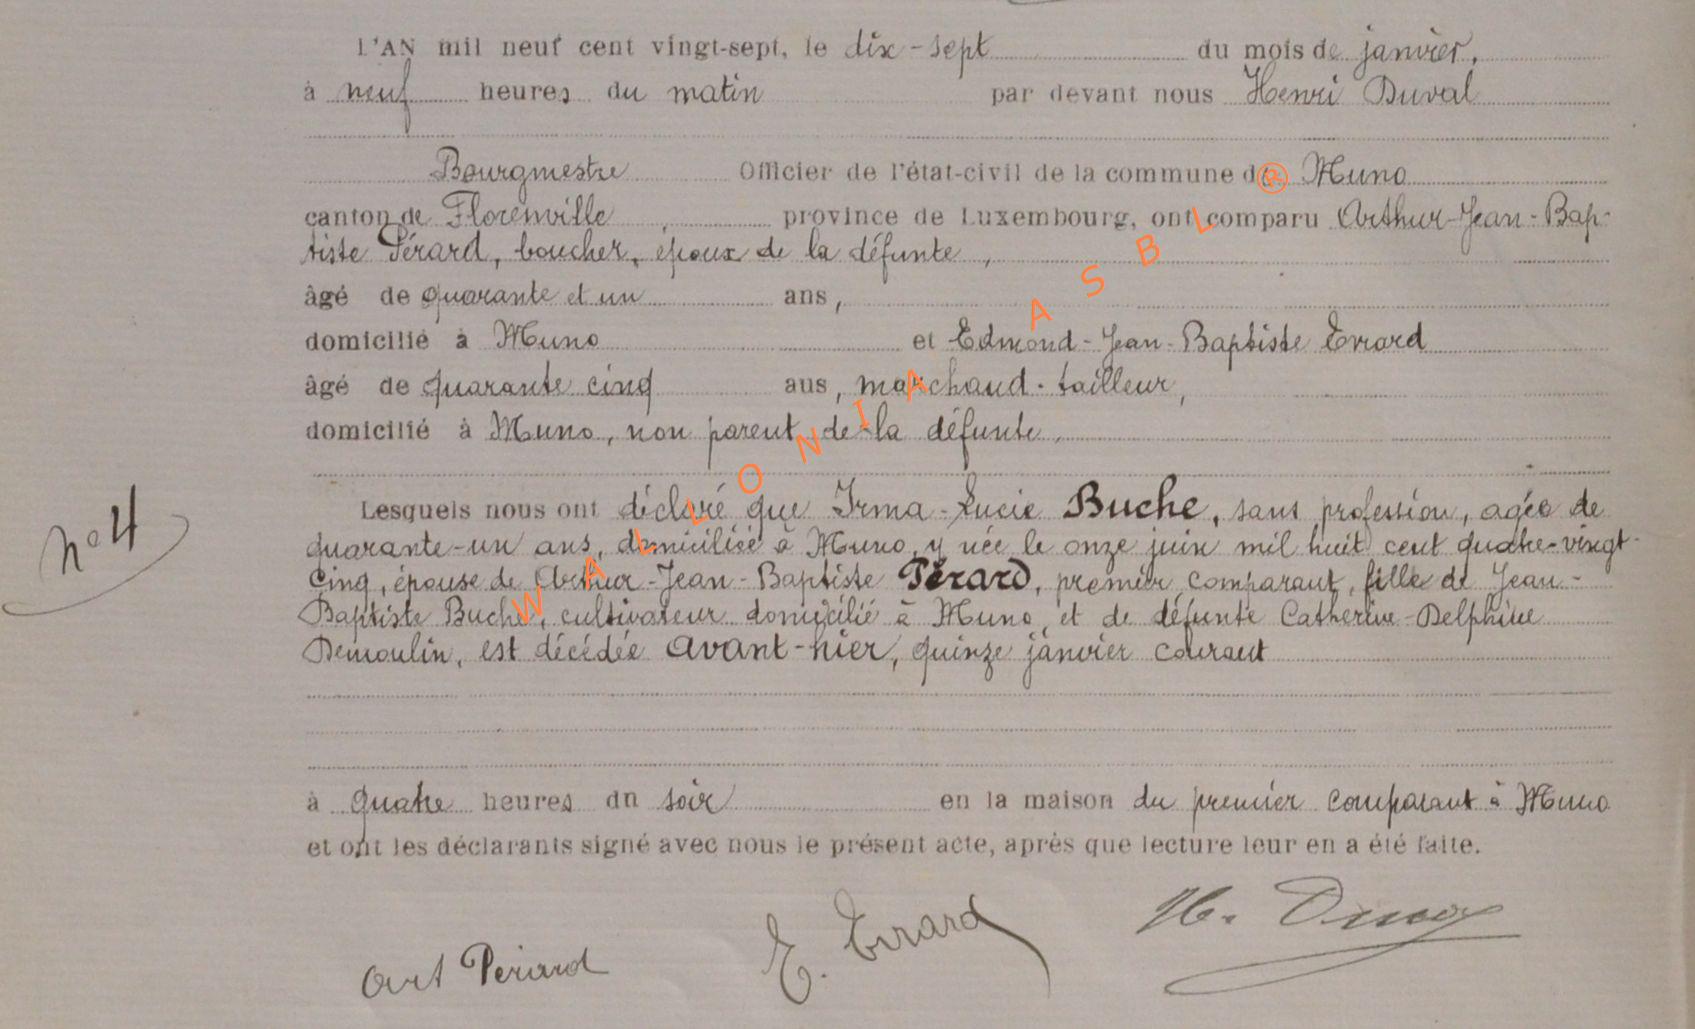 L'AN mil neuf cent vingt-sept, le dix-sept du mois de janvier,
à neuf heures du matin par devant nous Henri Duval
Bourgmestre Officier de l'état-civil de la commune de ® Muno
canton de Florenville, province de Luxembourg, ont comparu Arthur-Jean-Bap-
tiste Pérard, boucher, époux de la défunte,
âgé de quarante et un ans,
domicilié à Muno et Edmond-Jean-Baptiste Evrard
âgé de quarante cinq ans, marchand-tailleur,
domicilié à Muno, non parent de la défunte,
Lesquels nous ont déclaré que Irma-Lucie Buche, sans profession, agée de
quarante-un ans, domiciliée à Muno, y née le onze juin mil huit cent quatre-vingt-
cinq, épouse de Arthur-Jean-Baptiste Pérard, premier comparant, fille de Jean-
Baptiste Buche, cultivateur domicilié à Muno, et de défunte Catherine-Delphine
Demoulin, est décédée avant-hier, quinze janvier courant
n° 4
à quatre heures du soir en la maison du premier comparant à Muno
et ont les déclarants signé avec nous le présent acte, après que lecture leur en a été faite.
Art Pérard E. Evrard H. Duval
WALLONIA ASBL